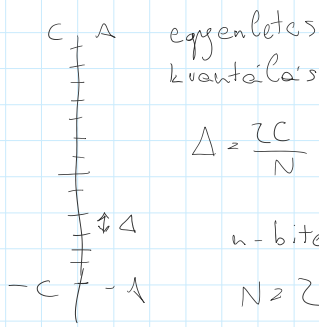 C A egyenletes
kvantálás
Δ = 2C / N
Δ
n-bite
-C -A N = 2